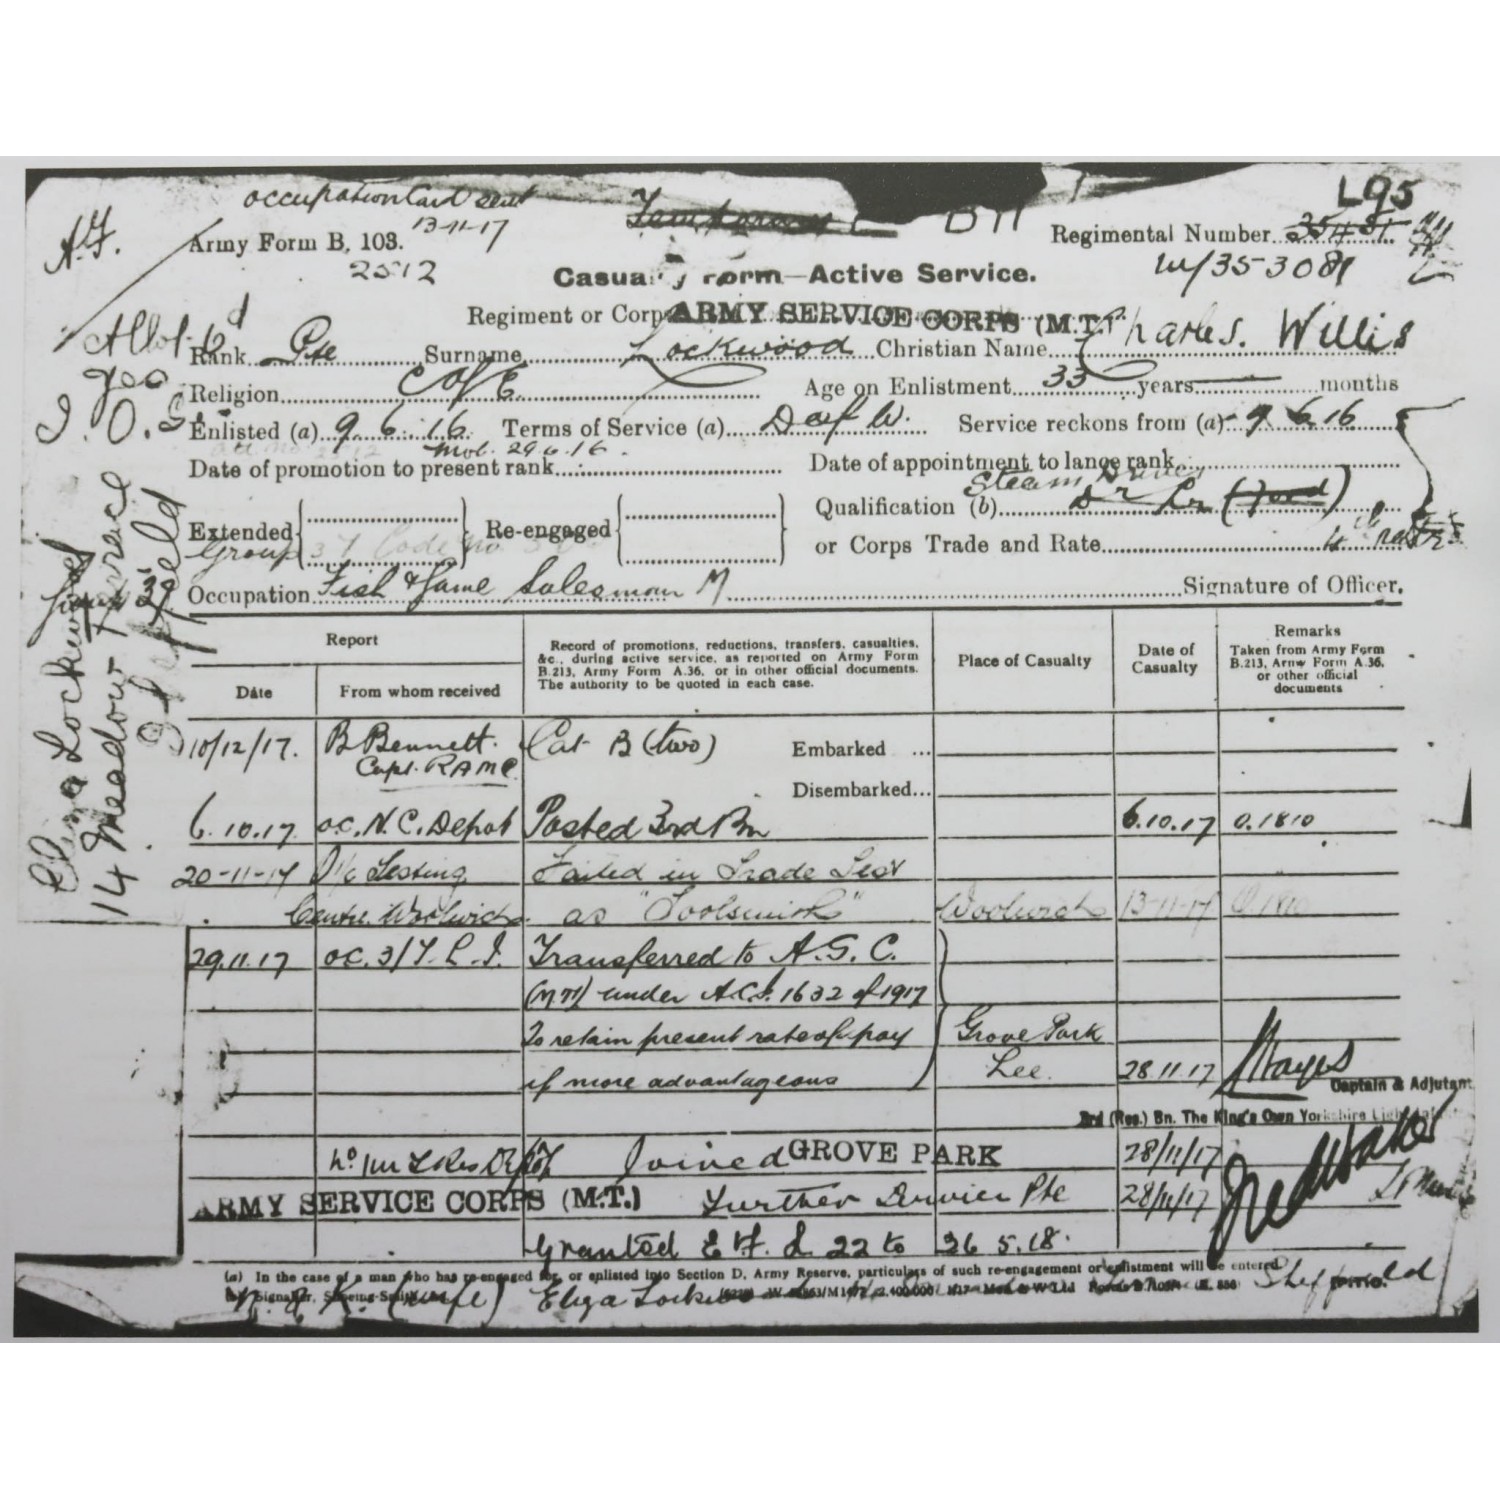 occupation Card sent
13-11-17
L95
A.F.
Army Form B. 103.
2512
Regimental Number 35451
M/353081
Casualty Form—Active Service.
Regiment or Corps ARMY SERVICE CORPS (M.T.)
Allot. 6d
Rank Pte Surname Lockwood Christian Name Charles. Willis
Religion C of E. Age on Enlistment 33 years months
Enlisted (a) 9.6.16 Terms of Service (a) D of W. Service reckons from (a) 9.6.16
Mob. 29.6.16.
Date of promotion to present rank Date of appointment to lance rank
Steam Driver
Extended Re-engaged Qualification (b) Dr Lr (Ford)
or Corps Trade and Rate 4th rate
Group 37 Code No.
Occupation Fish & Game Salesman M Signature of Officer.
Eliza Lockwood
14 Meadow Terrace
Report
Date
From whom received
Record of promotions, reductions, transfers, casualties, &c., during active service, as reported on Army Form B.213, Army Form A.36, or in other official documents. The authority to be quoted in each case.
Place of Casualty
Date of Casualty
Remarks
Taken from Army Form B.213, Army Form A.36, or other official documents
10/12/17. B Bennett. Cat B (two) Embarked ...
Capt. RAMC
Disembarked...
6.10.17 O.C. N.C. Depot Posted 3rd Bn 6.10.17 O.1810
20-11-17 O i/c Testing Failed in Trade Test
Centre. Woolwich. as "Toolsmith" Woolwich 13-11-17 O.1810
29.11.17 OC. 3/Y.L.I. Transferred to A.S.C.
(MT) under A.C.I. 1632 of 1917
To retain present rate of pay Grove Park
if more advantageous Lee. 28.11.17 Hayes
Captain & Adjutant
3rd (Res.) Bn. The King's Own Yorkshire Light
No 1 Depot Joined GROVE PARK 28/11/17
ARMY SERVICE CORPS (M.T.) Further Service Pte 28/11/17
Granted E.F. L. 22 to 26.5.18.
(a) In the case of a man who has re-engaged for, or enlisted into Section D, Army Reserve, particulars of such re-engagement or enlistment will be entered.
(b) Signaller, Shoeing-Smith,
N. of K. (wife) Eliza Lockwood Sheffield